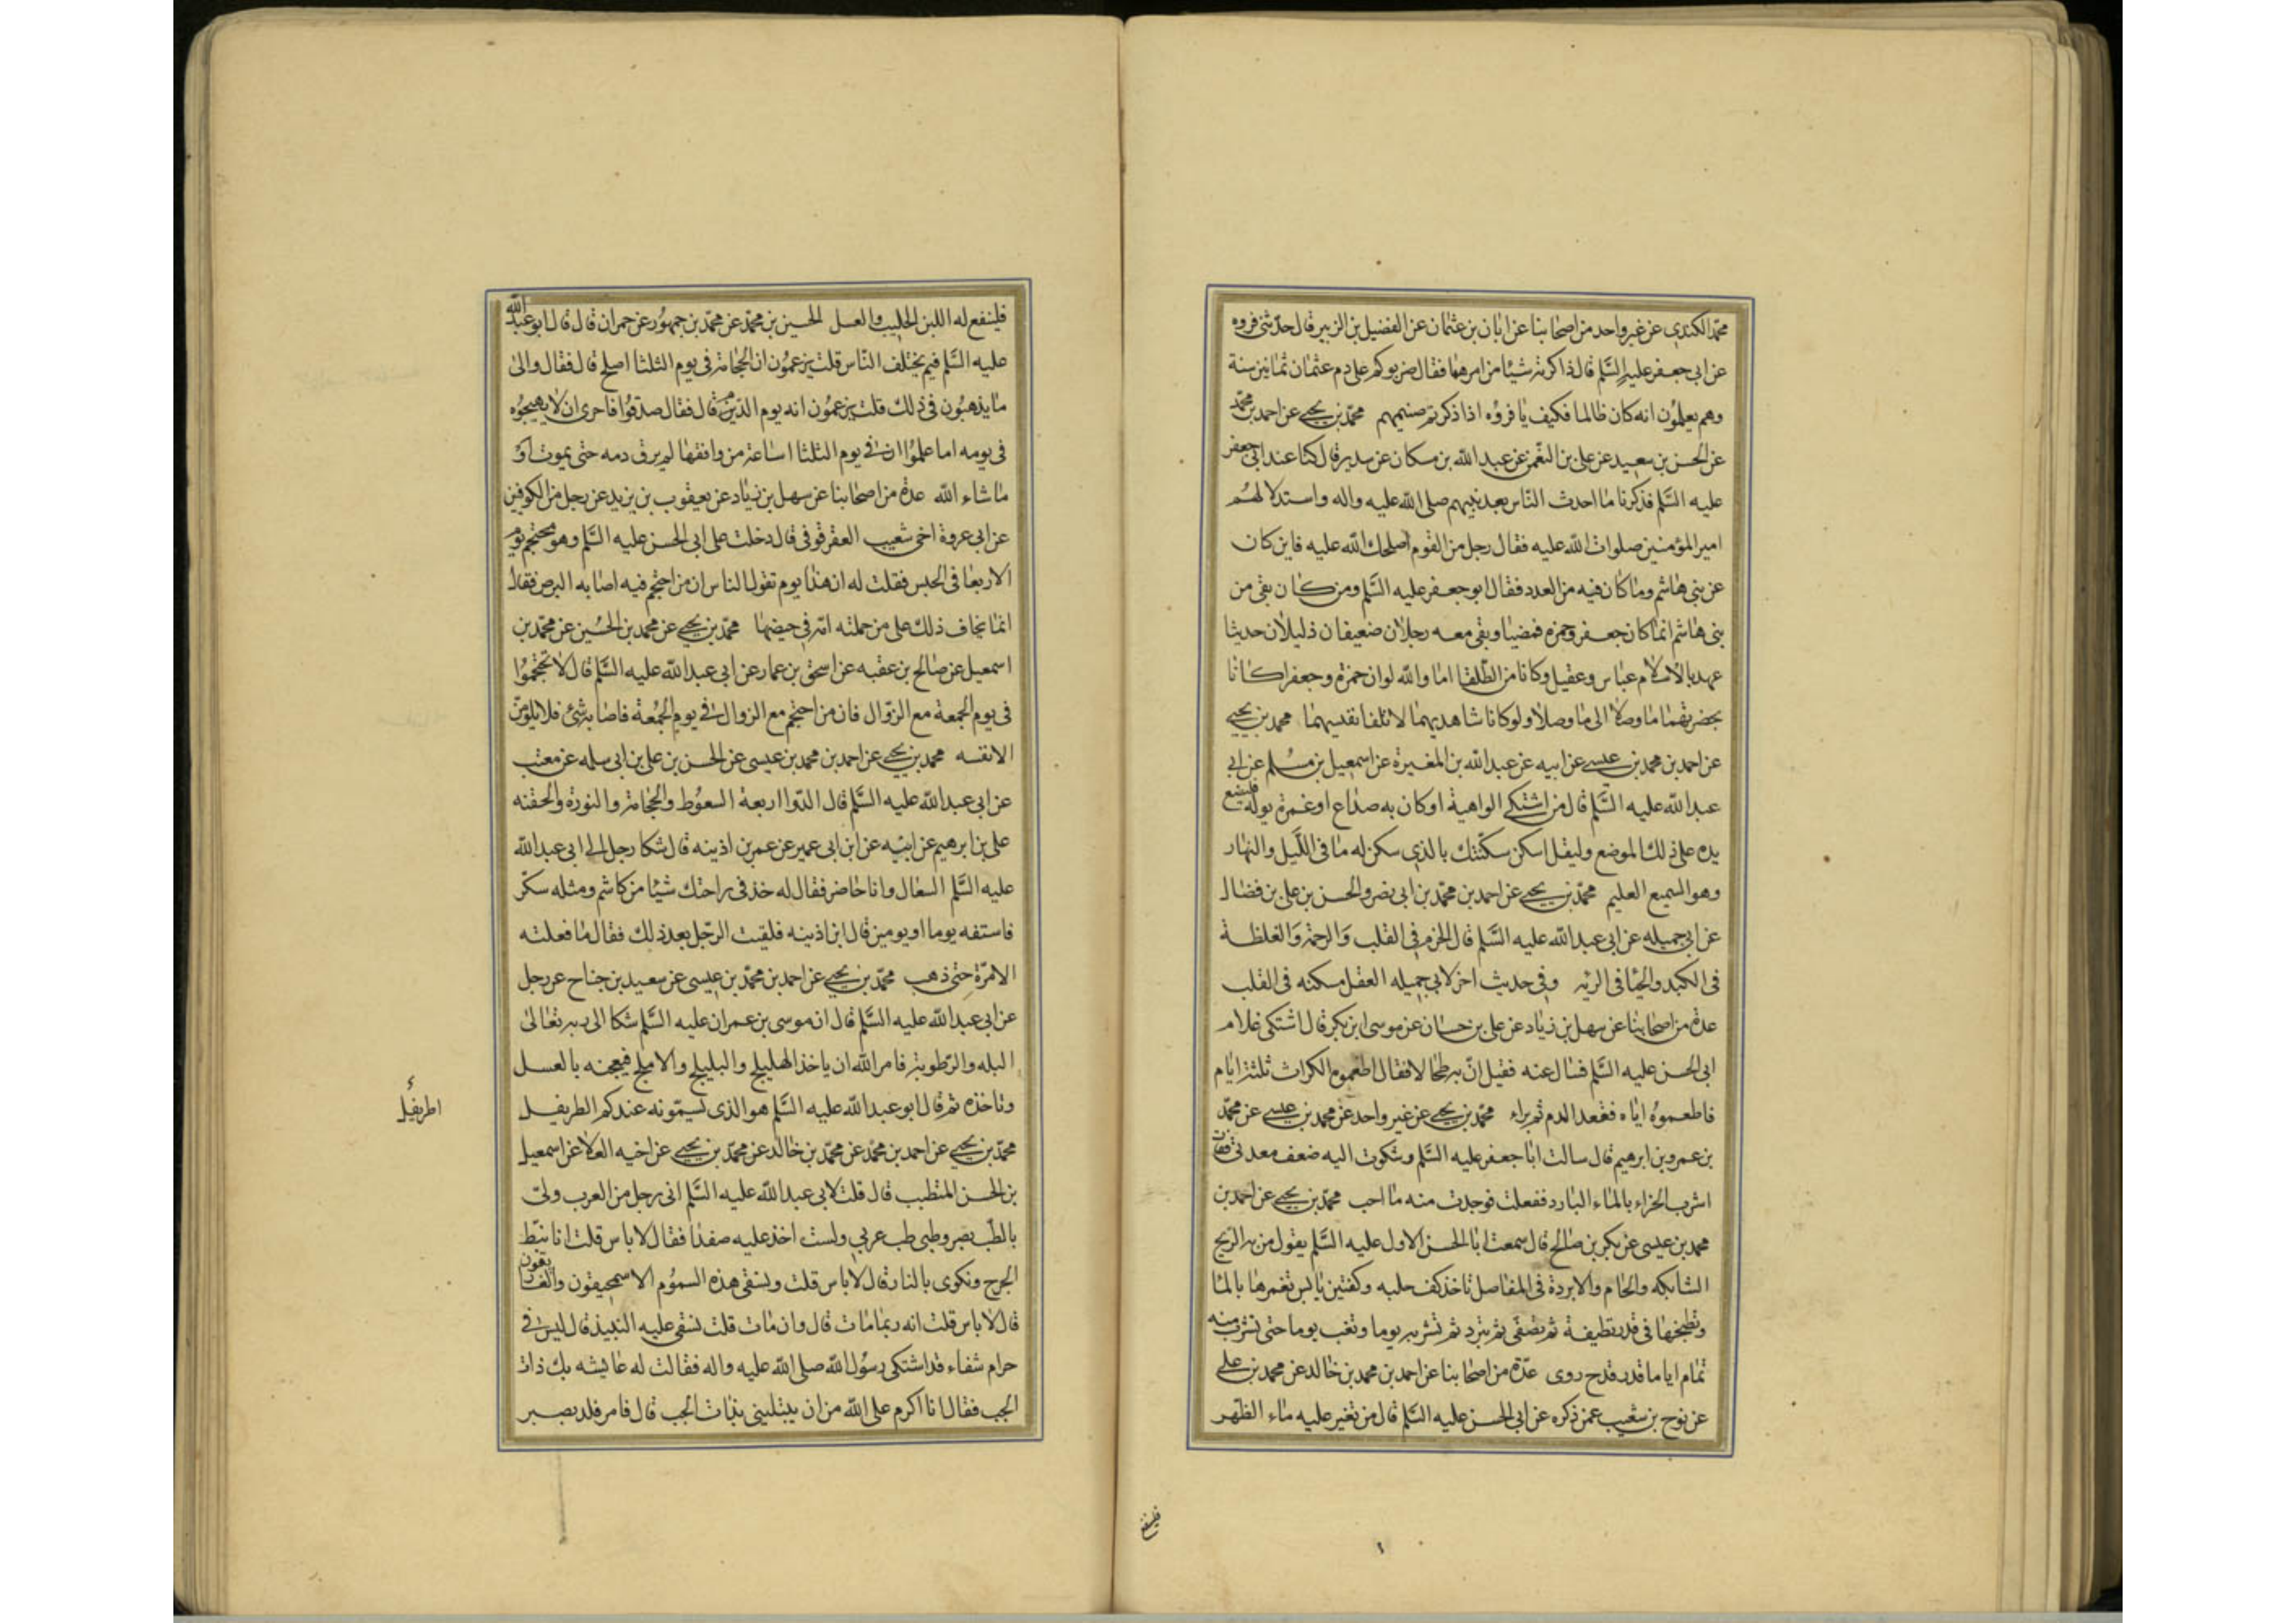 محمد الكندي عن غير واحد من اصحابنا عن ابان بن عثمان عن الفضيل بن الزبير قال حدثنى فروه
عن ابى جعفر عليه السلم قال ذاكرته شيئا من امرهما فقال ضربوكم على دم عثمان ثمانين سنة
وهم يعلمون انه كان ظالما فكيف يا فروه اذا ذكرتم صنميهم محمد بن يحيى عن احمد بن محمد
عن الحسين بن سعيد عن على بن النعمن عن عبد الله بن مسكان عن سدير قال كنا عند ابى جعفر
عليه السلم فذكرنا ما احدث الناس بعد نبيهم صلى الله عليه واله واستدلالهم
امير المؤمنين صلوات الله عليه فقال رجل من القوم اصلحك الله عليه فاين كان
عن بنى هاشم وما كان فيه من العدد فقال ابو جعفر عليه السلم ومن كان بقى من
بنى هاشم انما كان جعفر وحمزه فمضيا وبقى معه رجلان ضعيفان ذليلان حديثا
عهد بالاسلام عباس وعقيل وكانا من الطلقا اما والله لو ان حمزة وجعفرا كانا
بحضرتهما ما وصلا الى ما وصلا ولو كانا شاهديهما لاتلفا نفسيهما محمد بن يحيى
عن احمد بن محمد بن عيسى عن ابيه عن عبد الله بن المغيرة عن اسمعيل بن مسلم عن ابى
عبد الله عليه السلم قال من اشتكى الواهية او كان به صداع او غمرة بوله فليضع
يده على ذلك الموضع وليقل اسكن سكنتك بالذى سكن له ما فى الليل والنهار
وهو السميع العليم محمد بن يحيى عن احمد بن محمد بن ابى نصر والحسن بن على بن فضال
عن ابى جميله عن ابى عبد الله عليه السلم قال الحزم فى القلب والرحمة والغلظة
فى الكبد والحيا فى الريه وفى حديث اخر لابى جميله العقل مسكنه فى القلب
عدة من اصحابنا عن سهل بن زياد عن على بن حسان عن موسى ابن بكر قال اشتكى غلام
ابى الحسن عليه السلم فسال عنه فقيل ان به طحالا فقال اطعموه الكراث ثلثة ايام
فاطعموه اياه فقعد الدم ثم براء محمد بن يحيى عن غير واحد عن محمد بن عيسى عن محمد
بن عمرو بن ابرهيم قال سالت ابا جعفر عليه السلم وشكوت اليه ضعف معدتى فقال
اشرب الحزاء بالماء البارد ففعلت فوجدت منه ما احب محمد بن يحيى عن احمد بن
محمد بن عيسى عن بكر بن صالح قال سمعت ابا الحسن الاول عليه السلم يقول من به الريح
الشابكه والحام والابردة فى المفاصل تاخذ كف حلبه وكفتين يابس تغمرها بالما
وتطبخها فى قدر نظيفة ثم تصفى ثم تبرد ثم تشربه يوما وتغب يوما حتى تشرب منه
تمام اياما قدر قدح روى عدة من اصحابنا عن احمد بن محمد بن خالد عن محمد بن على
عن نوح بن شعيب عمن ذكره عن ابى الحسن عليه السلم قال من تغير عليه ماء الظهر
فلينفع
فلينفع له اللبن الحليب والعسل الحسين بن محمد عن محمد بن جمهور عن حمران قال قال ابو عبد الله
عليه السلم فيم يختلف الناس قلت يزعمون ان الحجامة فى يوم الثلثا اصلح قال فقال والى
ما يذهبون فى ذلك قلت يزعمون انه يوم الدم قال فقال صدقوا فاحرى ان لا يهيجوه
فى يومه اما علموا ان فى يوم الثلثا ساعة من وافقها لم يرق دمه حتى يموت او
ما شاء الله عدة من اصحابنا عن سهل بن زياد عن يعقوب بن يزيد عن رجل من الكوفيين
عن ابى عروة اخى شعيب العقرقوفى قال دخلت على ابى الحسن عليه السلم وهو محتجم يوم
الاربعا فى الحبس فقلت له ان هذا يوم تقول الناس ان من احتجم فيه اصابه البرص فقال
انما يخاف ذلك على من حملته امه فى حيضها محمد بن يحيى عن محمد بن الحسين عن محمد بن
اسمعيل عن صالح بن عقبه عن اسحق بن عمار عن ابى عبد الله عليه السلم قال لا تحتجموا
فى يوم الجمعة مع الزوال فان من احتجم مع الزوال فى يوم الجمعة فاصابه شئ فلا يلومن
الا نفسه محمد بن يحيى عن احمد بن محمد بن عيسى عن الحسن بن على بن ابى سلمه عن معتب
عن ابى عبد الله عليه السلم قال الدوا اربعة السعوط والحجامة والنورة والحقنه
على بن ابرهيم عن ابيه عن ابن ابى عمير عن عمر بن اذينه قال شكا رجل الى ابى عبد الله
عليه السلم السعال وانا حاضر فقال له خذ فى راحتك شيئا من كاشم ومثله سكر
فاستفه يوما او يومين قال ابن اذينه فلقيت الرجل بعد ذلك فقال ما فعلته
الا مرة حتى ذهب محمد بن يحيى عن احمد بن محمد بن عيسى عن سعيد بن جناح عن رجل
عن ابى عبد الله عليه السلم قال ان موسى بن عمران عليه السلم شكا الى ربه تعالى
البله والرطوبة فامر الله ان ياخذ الهليلج والبليلج والاملج فيعجنه بالعسل
وتاخذه ثم قال ابو عبد الله عليه السلم هو الذى تسمونه عندكم الطريفل
اطريفل
محمد بن يحيى عن احمد بن محمد عن محمد بن خالد عن محمد بن يحيى عن اخيه العلا عن اسمعيل
بن الحسن المتطبب قال قلت لابى عبد الله عليه السلم انى رجل من العرب ولى
بالطب بصر وطبى طب عربى ولست اخذ عليه صفدا فقال لا باس قلت انا نبط
الجرح ونكوى بالنار قال لا باس قلت ونسقى هذه السموم الاسمحيقون والغاريقون
قال لا باس قلت انه ربما مات قال وان مات قلت نسقى عليه النبيذ قال ليس فى
حرام شفاء قد اشتكى رسول الله صلى الله عليه واله فقالت له عايشه بك ذات
الجنب فقال انا اكرم على الله من ان يبتلينى بذات الجنب قال فامر فلد بصبر